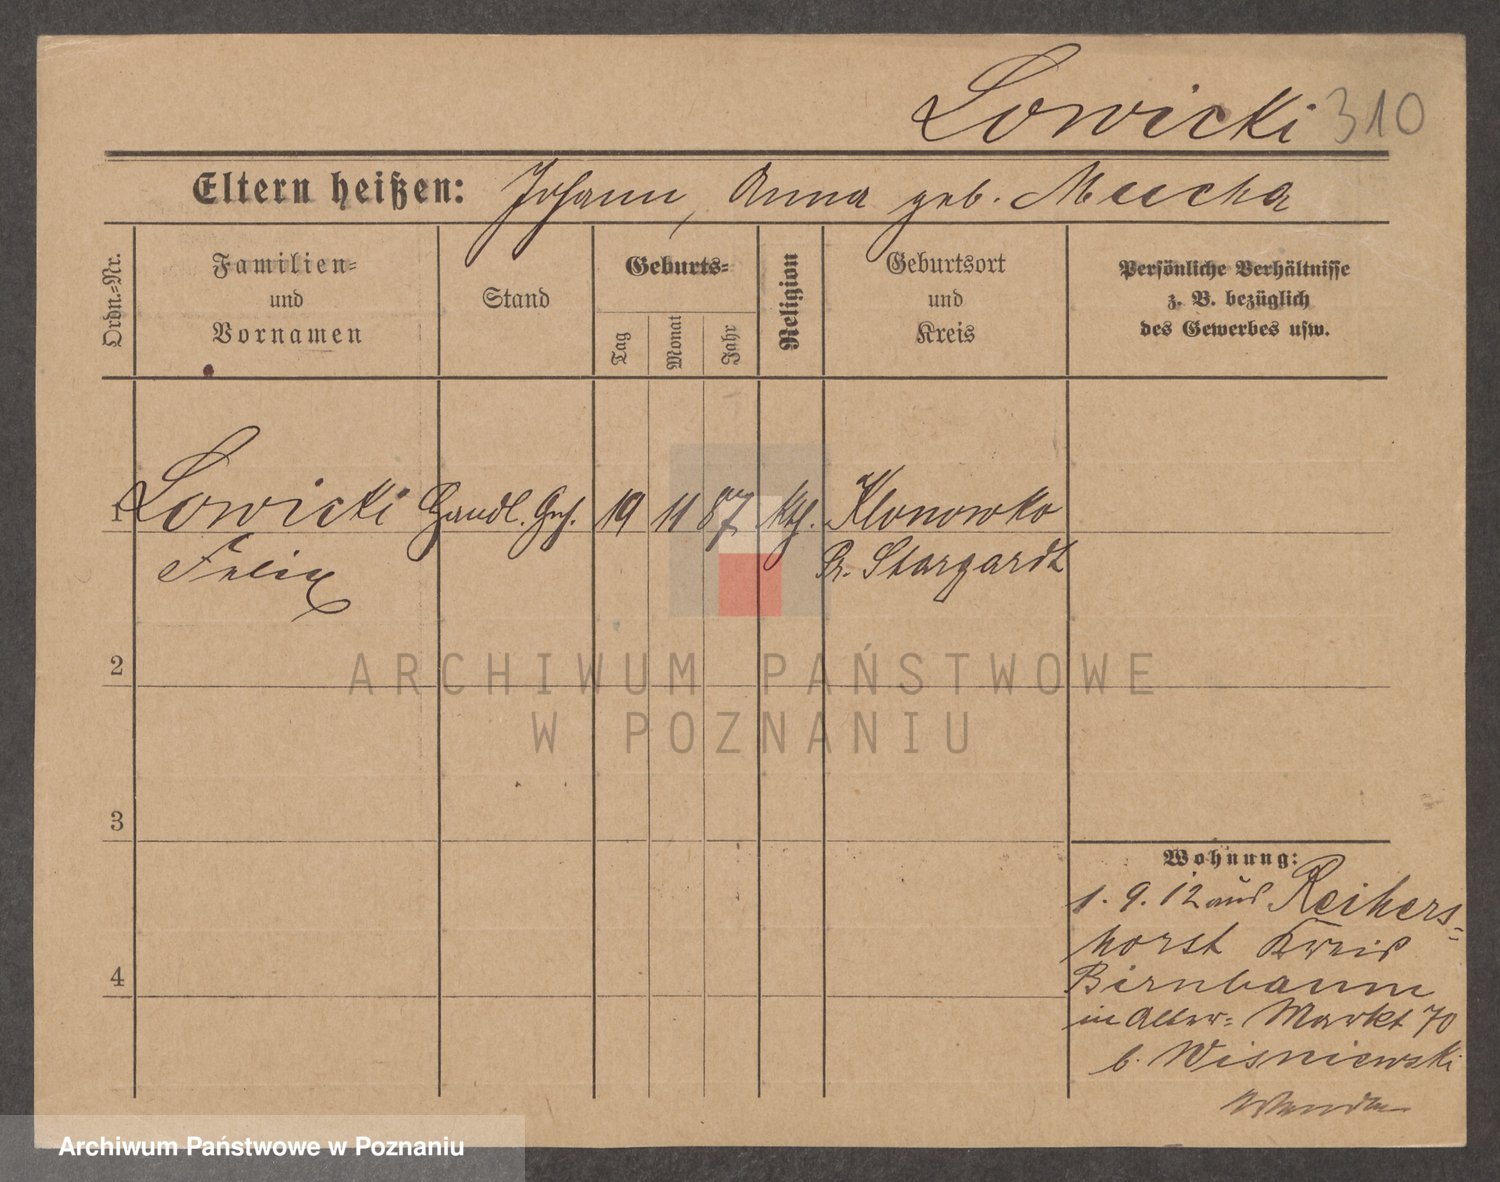 Lowicki 310
Eltern heißen: Johann, Anna geb. Mucha
Ordn.=Nr.
Familien=
und
Vornamen
Stand
Geburts=
Tag
Monat
Jahr
Religion
Geburtsort
und
Kreis
Persönliche Verhältnisse
z. B. bezüglich
des Gewerbes usw.
1 Lowicki Handl. Geh. 19 11 87 kth. Klonowko
Felix Pr. Stargardt
2
ARCHIWUM PAŃSTWOWE
W POZNANIU
3
Wohnung:
1. 9. 12 aus Reihers=
horst Kreis
4 Birnbaum
in Alter= Markt 70
b. Wisniewski
Archiwum Państwowe w Poznaniu